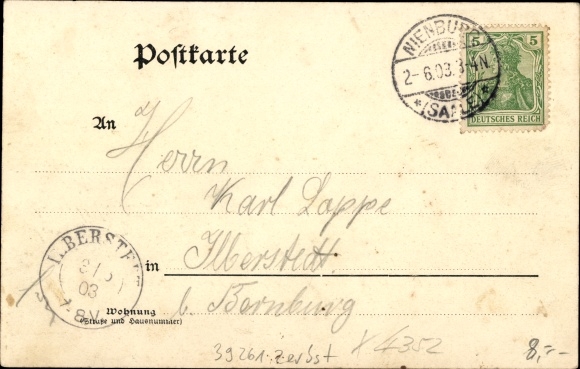 Postkarte
NIENBURG
2-6.03.3-4N.
*(SAALE)*
5 5
DEUTSCHES REICH
An
Herrn
Karl Lappe
in Ilberstedt
b. Bernburg
ILBERSTEDT
03
8V
Wohnung
(Straße und Hausnummer)
39261 Zerbst X 4352 8,--